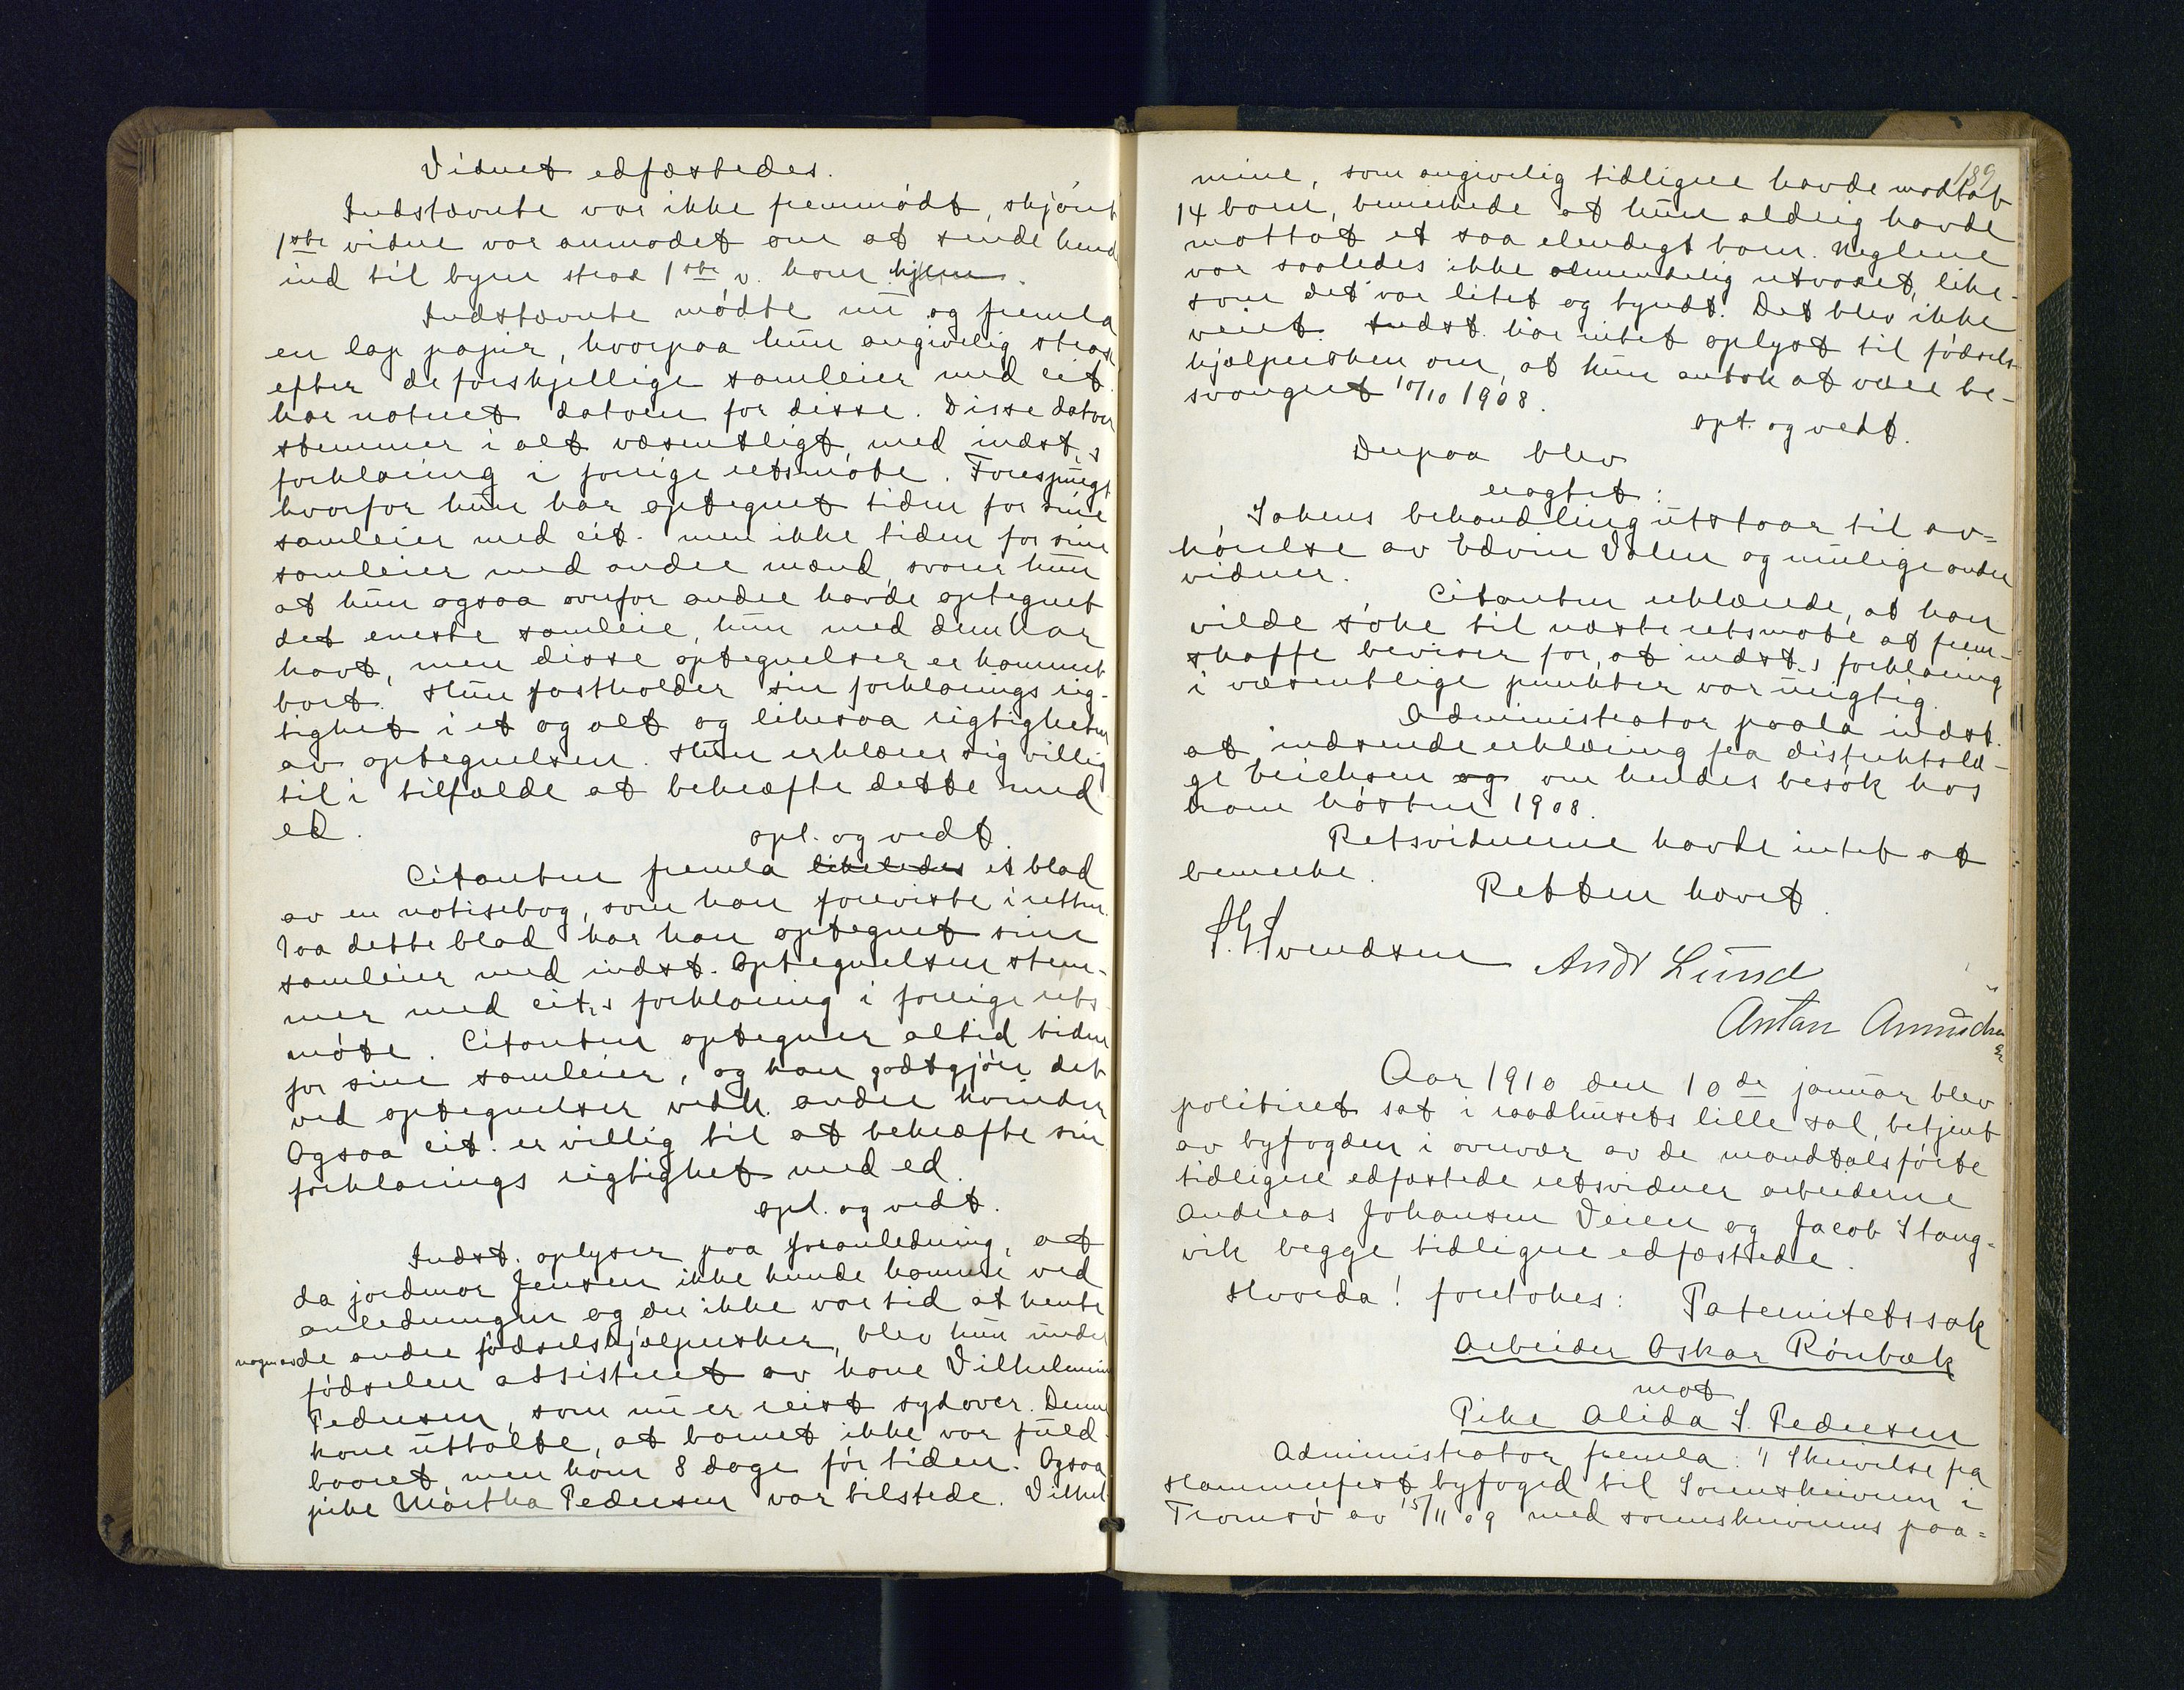 Vidnet edfæstedes.
Indstævnte var ikke fremmødt, skjønt
1ste vidne var anmodet om at sende hende
ind til byen strax 1ste v. kom hjem.
Indstævnte mødte nu og fremla
en lap papir, hvorpaa hun angivelig strax
efter de forskjellige samleier med cit.
har notert datoen for disse. Disse datoer
stemmer i alt væsentligt med indst.s
forklaring i forrige retsmøte. Forespurgt
hvorfor hun har optegnet tiden for sine
samleier med cit. men ikke tiden for sine
samleier med andre mænd, svarer hun
at hun ogsaa ovnfor andre havde optegnet
det eneste samleie, hun med dem har
havt, men disse optegnelser er kommet
bort. Hun fastholder sin forklarings rig-
tighet i et og alt og likesaa rigtigheten
av optegnelsen. Hun erklærer sig villig
til i tilfælde at bekræfte dette med
ed.
opl. og vedt.
Citanten fremla likeledes et blad
av en notisebog, som han foreviste i retten.
Paa dette blad har han optegnet sine
samleier med indst. Optegnelsen stem-
mer med cit.s forklaring i forrige rets-
møte. Citanten optegner altid tiden
for sine samleier, og han godtgjør det
ved optegnelser vedk. andre kvinder
Ogsaa cit. er villig til at bekræfte sin
forklarings rigtighet med ed.
opl. og vedt.
Indst. oplyser paa foranledning, at
da jordmor Jensen ikke kunde komme ved
anledningen og der ikke var tid at hente
nogen av de andre fødselshjælpersker, blev hun under
fødselen assisteret av kone Vilhelmine
Pedersen, som nu er reist sydover. Denne
kone uttalte, at barnet ikke var fuld-
baaret, men kom 8 dage før tiden. Ogsaa
pike Martha Pedersen var tilstede. Vilhel-
189
mine, som angivelig tidligere havde modtat
14 barn, bemerkede at hun aldrig havde
mottat et saa elendigt barn. Neglene
var saaledes ikke almindelig utvoxet, like-
som det var litet og tyndt. Det blev ikke
veiet. Indst. har intet oplyst til fødsels-
hjælpersken om, at hun antok at være be-
svangret 10/10 1908.
opl. og vedt.
Derpaa blev
eragtet:
Sakens behandling utstaar til av-
hørelse av Edvin Valen og mulige andre
vidner.
Citanten erklærede, at han
vilde søke til næste retsmøte at frem-
skaffe beviser for, at indst.s forklaring
i væsentlige punkter var urigtig.
Administrator paala indst.
at indsende erklæring fra distriktslæ-
ge Erichsen og om hendes besøk hos
ham høsten 1908.
Retsvidnerne havde intet at
bemerke.
Retten hævet.
Svendsen Andr Lund
Anton Amundsen
Aar 1910 den 10de januar blev
politiret sat i raadhusets lille sal, betjent
av byfogden i overvær av de mandtalsførte
tidligere edfæstede retsvidner arbeiderne
Andreas Johansen Veien og Jacob Stang-
vik begge tidligere edfæstede.
Hvorda! foretokes: Paternitetssak
Arbeider Oskar Rønbæk
mot
Pike Alida S. Pedersen
Administrator fremla: 1) Skrivelse fra
Hammerfest byfoged til Sorenskriveren i
Tromsø av 15/11 09 med sorenskriverens paa-